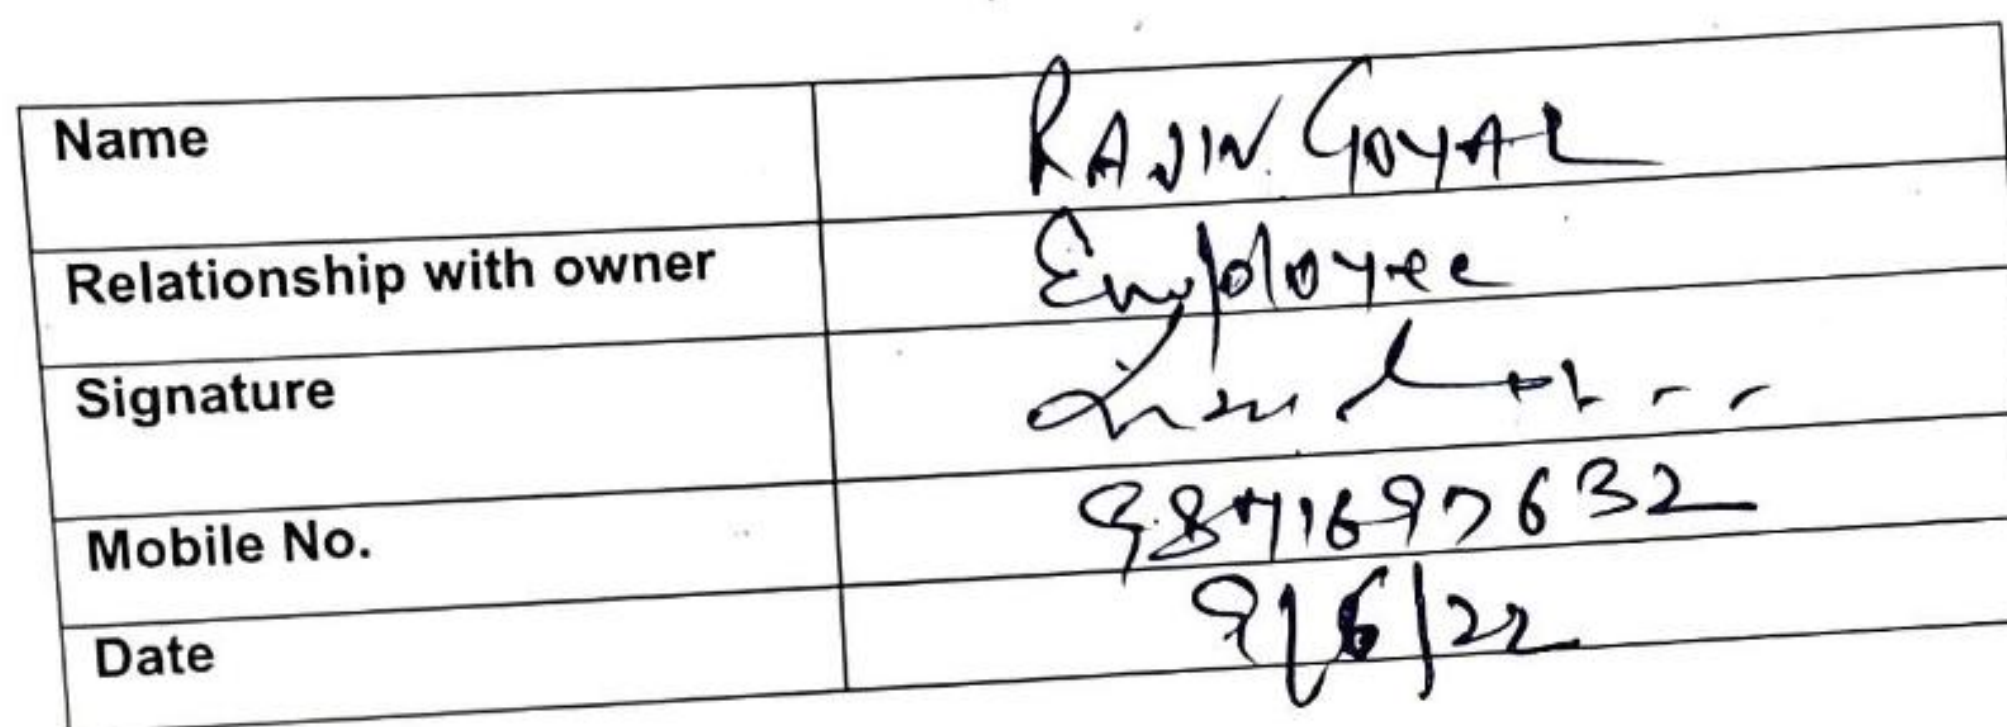 Name RAJIN GOYAL
Relationship with owner Employee
Signature
Mobile No. 9871697632
Date 9/6/22